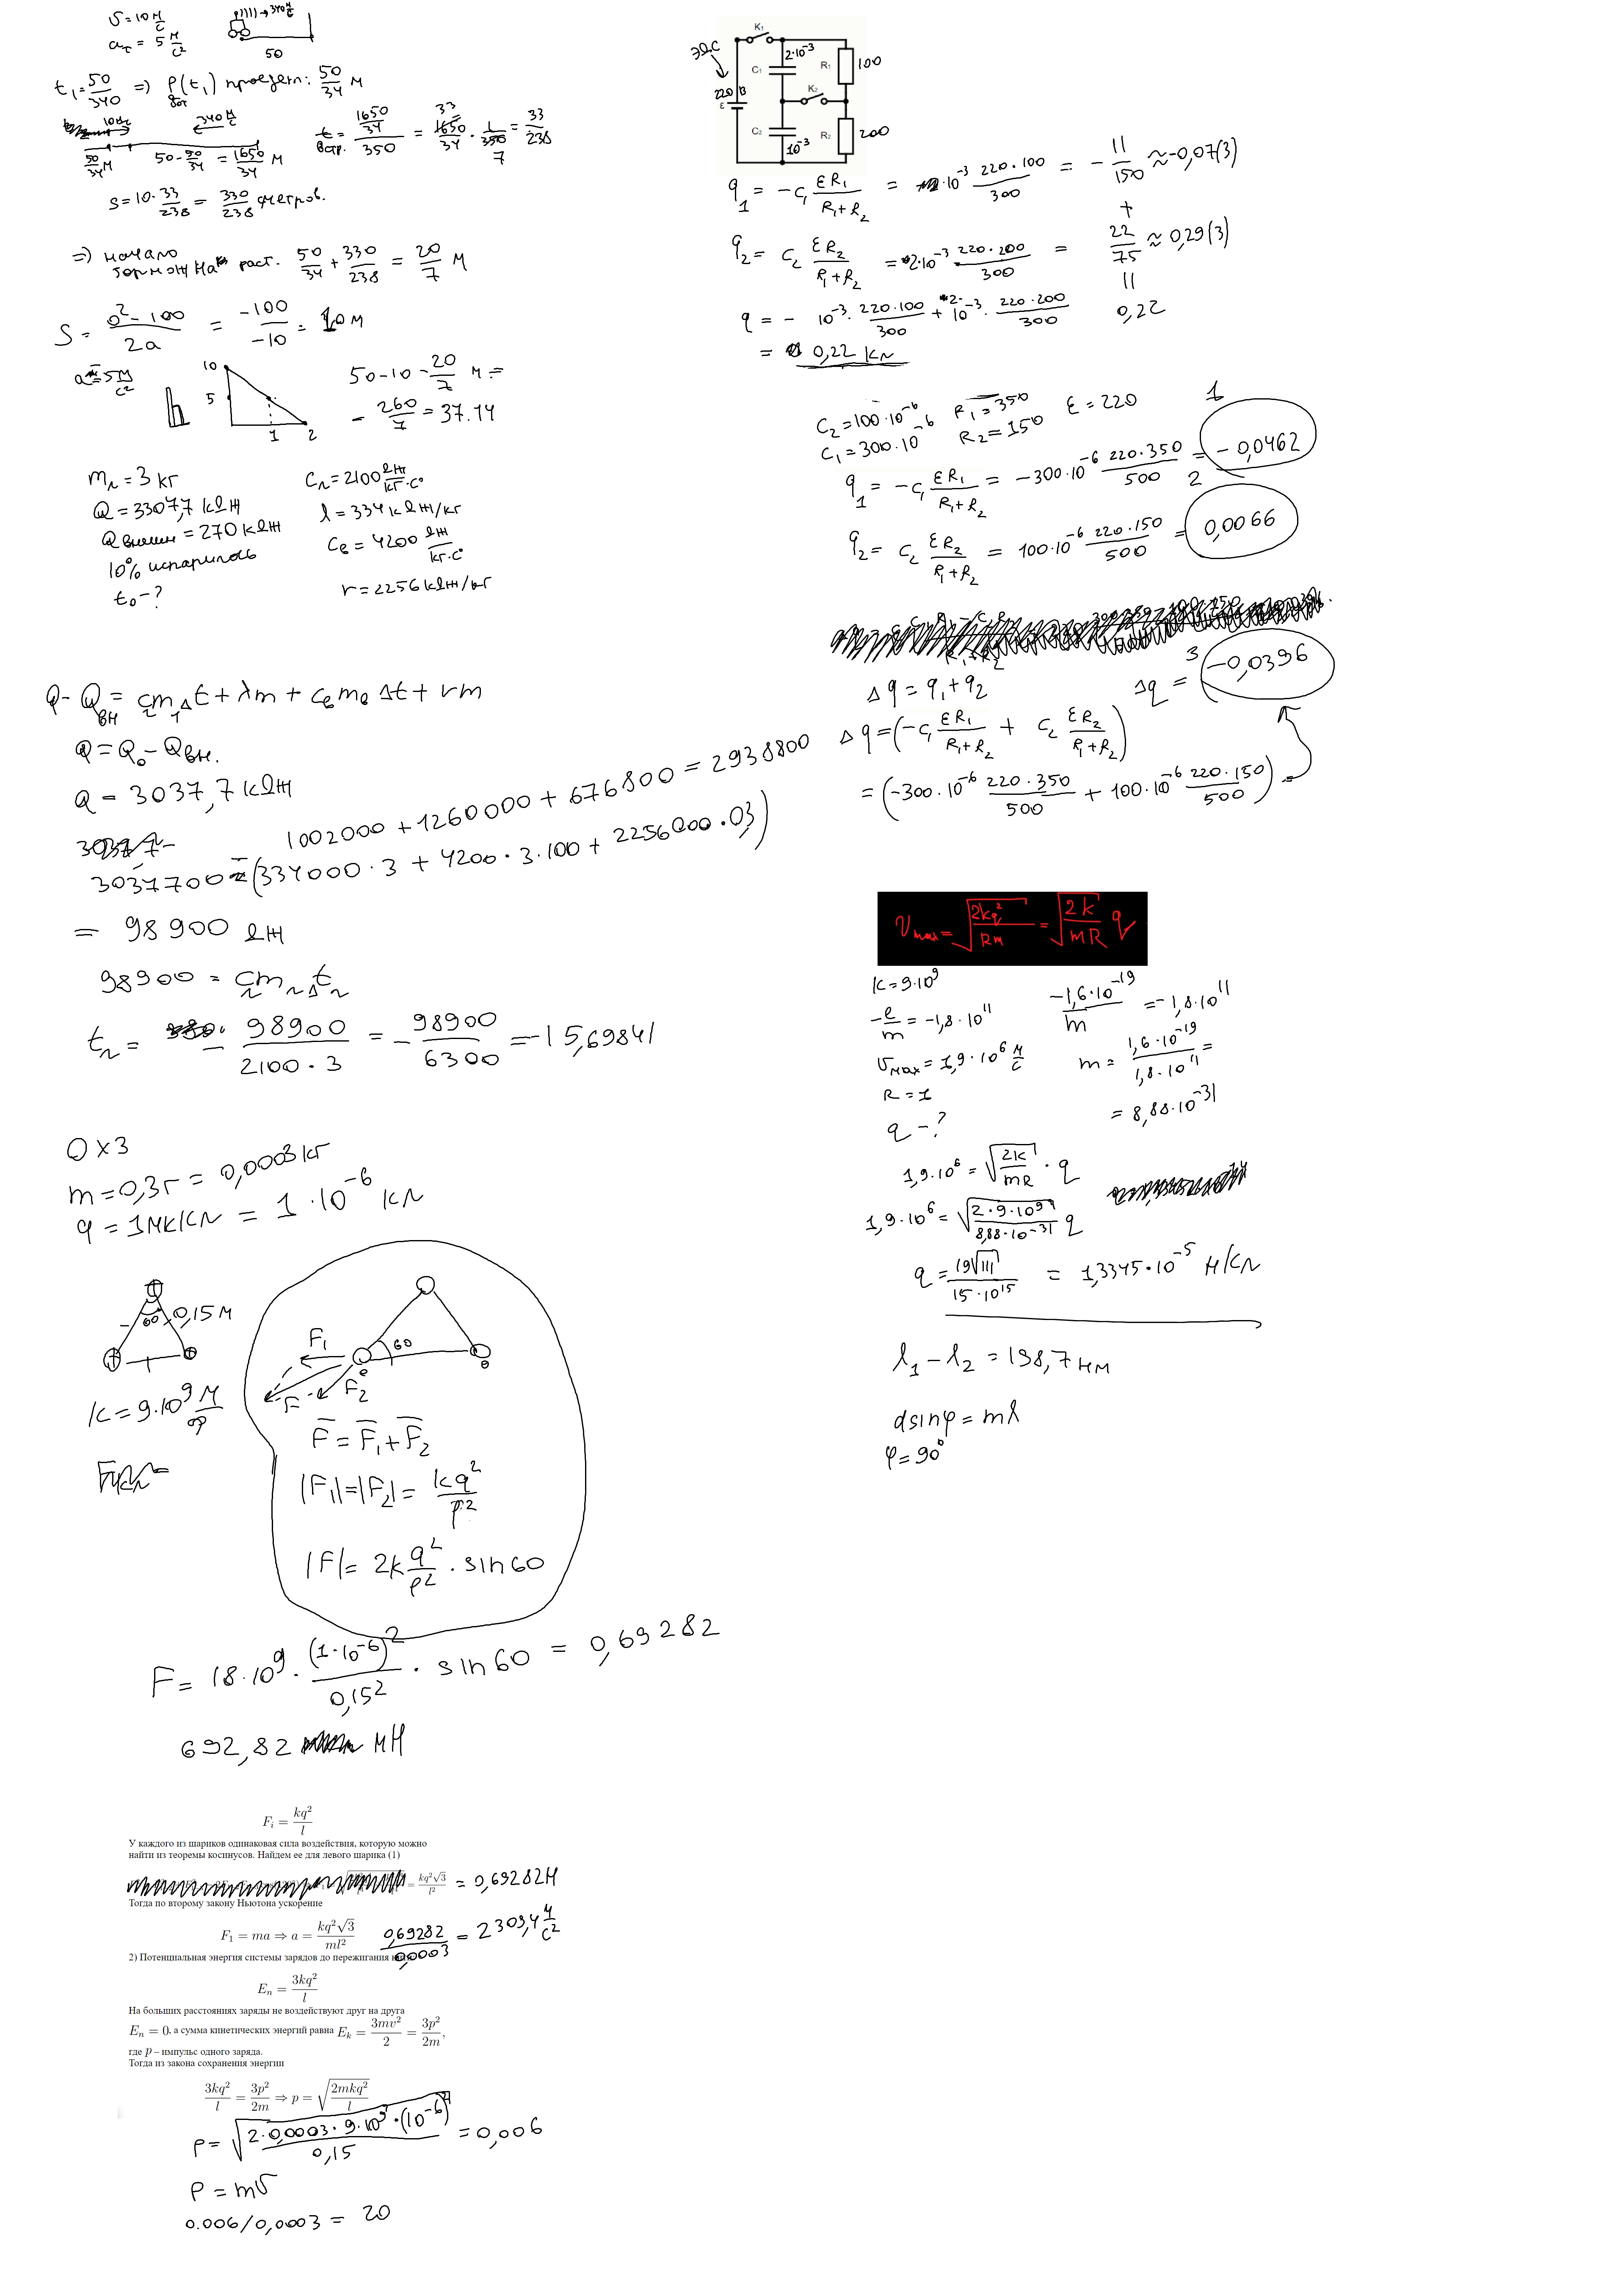 V=10 м/с
aт = 5 м/с²
→340 м/с
50
t₁=50/340 => P(t₁) проедет: 50/34 м
340 м/с
50/34 м 50-50/34 = 1650/34 м
t встр. = (1650/34)/350 = 1650/34 · 1/350 = 33/238
S=10·33/238 = 330/238 метров.
=> начало
тормож на раст. 50/34 + 330/238 = 20/7 м
S = (0²-100)/2a = -100/-10 = 10 м
a=-5 м/с²
10
5
1 2
50-10-20/7 м =
= 260/7 = 37.14
mл=3 кг
Q=3307,7 кДж
Qвнешн=270 кДж
10% испарилось
t₀-?
Cл=2100 Дж/кг·C°
l=334 кДж/кг
Cв=4200 Дж/кг·C°
r=2256 кДж/кг
Q-Qвн = cлmлΔt+λm+cвmвΔt+rm
Q=Q₀-Qвн.
Q=3037,7 кДж
1002000+1260000+676800=2938800
3037700-(334000·3+4200·3·100+2256000·0,3)
= 98900 Дж
98900 = cлmлΔtл
tл = - 98900/(2100·3) = - 98900/6300 = -15,69841
O x3
m=0,3г=0,0003кг
q=1мкКл=1·10⁻⁶ Кл
60
0,15м
k=9·10⁹ м/ф
F₁
60
F F₂
F̅=F̅₁+F̅₂
|F₁|=|F₂|= kq²/r²
|F|= 2k q²/r² · sin60
F= 18·10⁹ · (1·10⁻⁶)²/0,15² · sin60 = 0,69282
692,82 мН
Fᵢ = kq²/l
У каждого из шариков одинаковая сила воздействия, которую можно
найти из теоремы косинусов. Найдем ее для левого шарика (1)
= kq²√3/l² = 0,69282Н
Тогда по второму закону Ньютона ускорение
F₁ = ma ⇒ a = kq²√3/ml² 0,69282/0,0003 = 2309,4 м/с²
2) Потенциальная энергия системы зарядов до пережигания
Eₙ = 3kq²/l
На больших расстояниях заряды не воздействуют друг на друга
Eₙ = 0, а сумма кинетических энергий равна Eₖ = 3mv²/2 = 3p²/2m,
где p – импульс одного заряда.
Тогда из закона сохранения энергии
3kq²/l = 3p²/2m ⇒ p = √(2mkq²/l)
p= √(2·0,0003·9·10⁹·(10⁻⁶)²/0,15) = 0,006
p = mV
0.006/0,0003 = 20
ЭДС
220 В
ε
K₁
2·10⁻³
C₁
R₁
100
K₂
C₂
10⁻³
R₂
200
q₁ = -C₁ εR₁/(R₁+R₂) = ·10⁻³ 220·100/300 = - 11/150 ≈-0,07(3)
+
q₂ = C₂ εR₂/(R₁+R₂) = 2·10⁻³ 220·200/300 = 22/75 ≈ 0,29(3)
||
q = - 10⁻³· 220·100/300 + 2·10⁻³· 220·200/300 0,22
= 0,22 Кл
C₂=100·10⁻⁶ R₁=350 ε=220
C₁=300·10⁻⁶ R₂=150
1
q₁ = -C₁ εR₁/(R₁+R₂) = -300·10⁻⁶ 220·350/500 = -0,0462
2
q₂ = C₂ εR₂/(R₁+R₂) = 100·10⁻⁶ 220·150/500 = 0,0066
3
Δq = q₁+q₂ Δq = -0,0396
Δq=(-C₁ εR₁/(R₁+R₂) + C₂ εR₂/(R₁+R₂))
=(-300·10⁻⁶ 220·350/500 + 100·10⁻⁶ 220·150/500)=
Vmax=√(2kq²/Rm) = √(2k/mR) q
k=9·10⁹
-e/m=-1,8·10¹¹
Vмах=1,9·10⁶ м/с
R=1
q-?
-1,6·10⁻¹⁹/m =-1,8·10¹¹
m= 1,6·10⁻¹⁹/1,8·10¹¹ =
= 8,88·10⁻³¹
1,9·10⁶=√(2k/mR) · q
1,9·10⁶=√(2·9·10⁹/8,88·10⁻³¹) q
q= 19√111/15·10¹⁵ = 1,3345·10⁻⁵ нКл
l₁-l₂=138,7 нм
dsinφ=ml
φ=90°